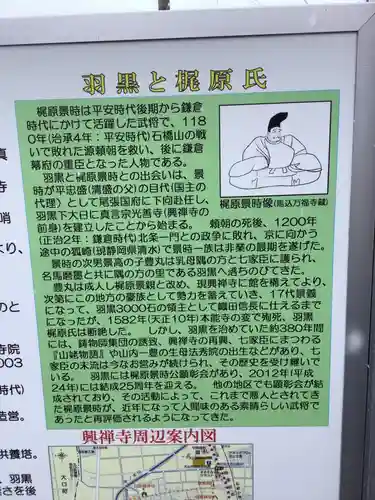 羽黒と梶原氏
梶原景時は平安時代後期から鎌倉
時代にかけて活躍した武将で、118
0年(治承4年:平安時代)石橋山の戦
いで敗れた源頼朝を救い、後に鎌倉
幕府の重臣となった人物である。
羽黒と梶原景時との出会いは、景
時が平忠盛(清盛の父)の目代(国主の
代理)として尾張国府に下向赴任し、
羽黒下大日に真言宗光善寺(興禅寺の
前身)を建立したことから始まる。
梶原景時像(馬込万福寺蔵)
頼朝の死後、1200年
(正治2年:鎌倉時代)北条一門との政争に敗れ、京に向かう
途中の狐崎(現静岡県清水)で景時一族は非業の最期を遂げた。
景時の次男景高の子豊丸は乳母隅の方と七家臣に護られ、
名馬磨墨と共に隅の方の里である羽黒へ落ちのびてきた。
豊丸は成人し梶原景親と改め、現興禅寺に館を構えてより、
次第にこの地方の豪族として勢力を蓄えていき、17代景義
になって、羽黒3000石の領主として織田信長に仕えるまで
になったが、1582年(天正10年)本能寺の変で殉死、羽黒
梶原氏は断絶した。 しかし、羽黒を治めていた約380年間
には、鋳物師集団の誘致、興禅寺の再興、七家臣にまつわる
『山姥物語』や山内一豊の生母法秀院の出生などがあり、七
家臣の末流は今なお営みが続けられ、その歴史を受け継いで
いる。 羽黒には梶原景時公顕彰会があり、2012年(平成
24年)には結成25周年を迎える。 他の地区でも顕彰会が結
成されており、その活動によって、これまで悪人とされてき
た梶原景時が、近年になって人間味のある素晴らしい武将で
あったと再評価されるようになってきた。
興禅寺周辺案内図
真
寺
哨
より、
のと
寺院
003
時代)
造営。
供養塔。
、羽黒
さを後